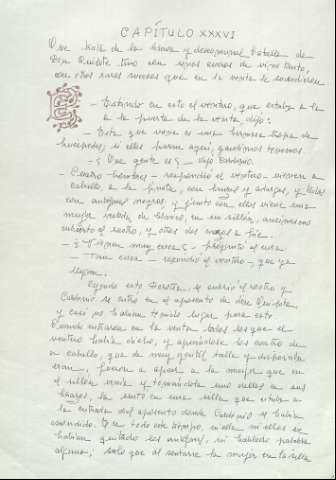 CAPÍTULO XXXVI
Que trata de la brava y descomunal batalla de
Don Quijote tuvo con unos cueros de vino tinto,
con otros raros sucesos que en la venta le sucedieron
E
- Estando en esto el ventero, que estaba a la
a la puerta de la venta dijo:
- Esta que viene es una hermosa tropa de
huéspedes; si ellos paran aquí, gaudeamus tenemos.
- ¿Qué gente es? - dijo Cardenio.
- Cuatro hombres - respondió el ventero - vienen a
caballo, a la jineta, con lanzas y adargas, y todos
con antifaces negros, y junto con ellos viene una
mujer vestida de blanco, en un sillón, ansimesmo
cubierto el rostro, y otros dos mozos a pie.
- ¿Vienen muy cerca? - preguntó el cura
- Tan cerca - respondió el ventero -, que ya
llegan.
Oyendo esto Dorotea, se cubrió el rostro y
Cardenio se entró en el aposento de don Quijote,
y casi no habían tenido lugar para esto
cuando entraron en la venta todos los que el
ventero había dicho, y apeándose los cuatro de
a caballo, que de muy gentil talle y disposición
eran, fueron a apear a la mujer que en
el sillón venía y tomándola uno dellos en sus
brazos, la sentó en una silla que estaba a
la entrada del aposento donde Cardenio se había
escondido. En todo este tiempo, ni ella ni ellos se
habían quitado los antifaces, ni hablado palabra
alguna; solo que al sentarse la mujer en la silla